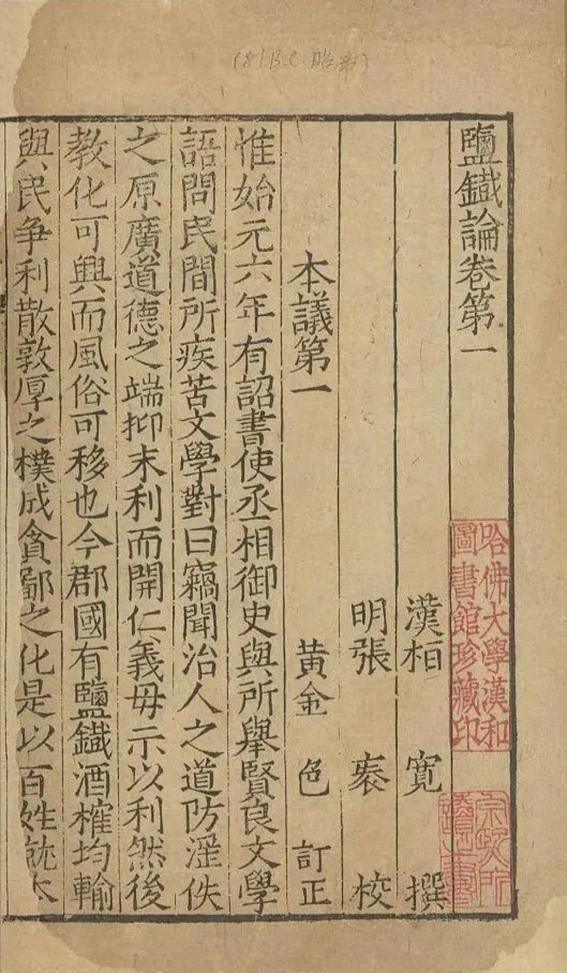 (81 B.C.
鹽鐵論卷第一
漢桓 寬 撰
明張 袠 校
本議第一 黃金色 訂正
惟始元六年有詔書使丞相御史與所舉賢良文學
語問民間所疾苦文學對曰竊聞治人之道防淫佚
之原廣道德之端抑末利而開仁義毋示以利然後
教化可興而風俗可移也今郡國有鹽鐵酒榷均輸
與民爭利散敦厚之樸成貪鄙之化是以百姓就本
哈佛大學漢和
圖書館珍藏印